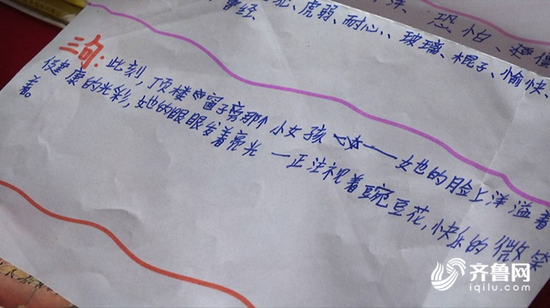 恐怕、
曾经
虚弱、耐心、、玻璃、棍子、愉快、
三句:此刻,顶楼的窗子旁那个小女孩——她的脸上洋溢着
健康的光彩,她的眼眼发着亮光一正注视着豌豆花,快乐的微笑
着
齐鲁网
iqilu.com